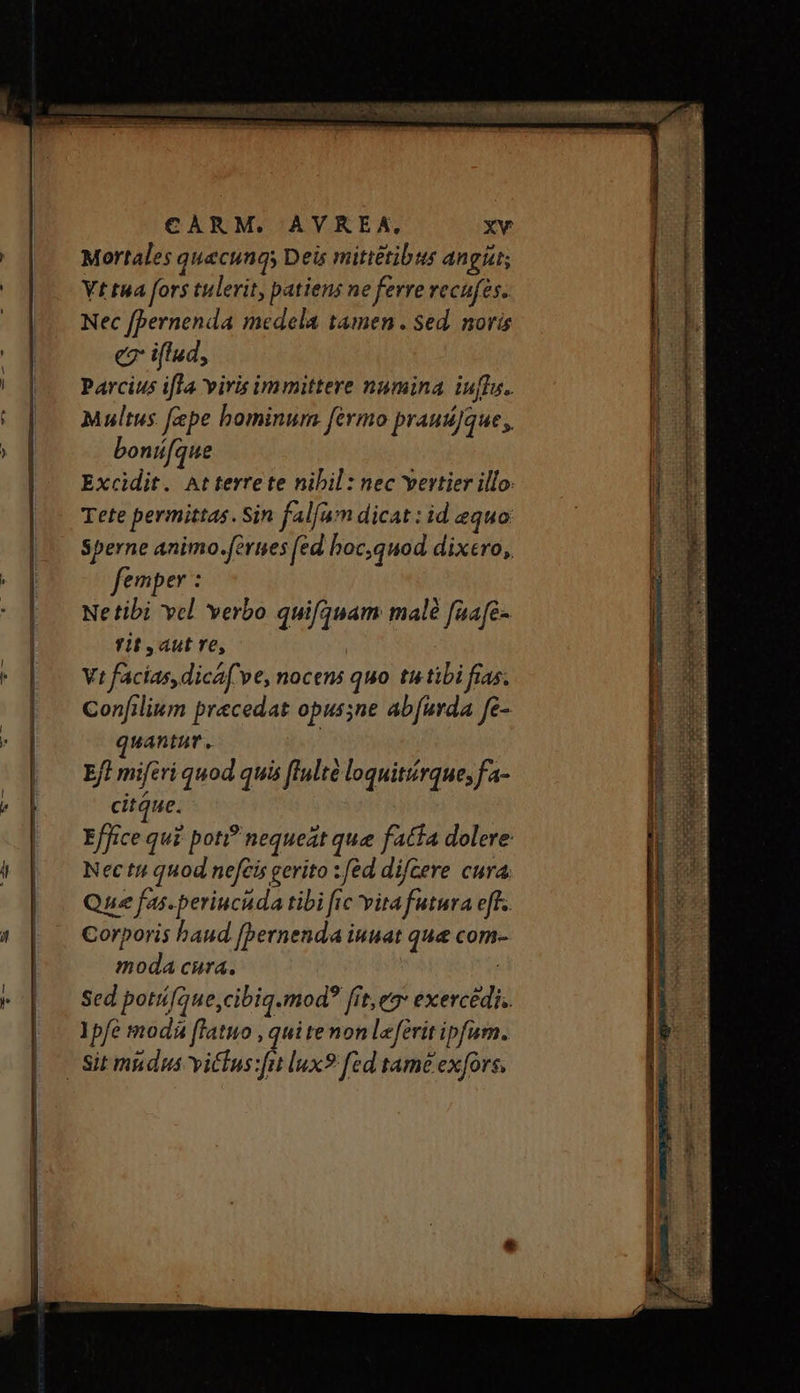 CARM. AVREA. XV
Mortales quæcunq; Deis mittētibus angūt;
Vt tua ſors tulerit, patiens ne ferre recuſes.
Nec ſpernenda medela tamen. Sed noris
& iſtud,
Parcius iſta viris immittere numina iuſtis.
Multus ſæpe hominum ſermo prauúſque,
bonúſque
Excidit. At terrete nihil: nec vertier illo
Tete permittas. Sin falſum dicat: id æquo
Sperne animo. ſerues ſed hoc, quod dixero,
ſemper:
Ne tibi vel verbo quiſquam malè ſuaſe-
rit, aut re,
Vt facias, dicáſ ve, nocens quo tu tibi fias.
Conſilium præcedat opus; ne abſurda ſe-
quantur.
Eſt miſeri quod quis ſtultè loquitúrque, fa-
citque.
Effice quī potiꝰ nequeāt quæ facta dolere
Nec tu quod neſcis gerito: ſed diſcere cura
Quæ fas. periucūda tibi ſic vita futura eſt.
Corporis haud ſpernenda iuuat quæ com-
moda cura.
Sed potúſque, cibiq. modꝰ ſit, & exercēdi.
Ipſe modū ſtatuo, qui te non læſerit ipſum.
Sit mūdus victus: ſit luxꝰ ſed tamē exſors,